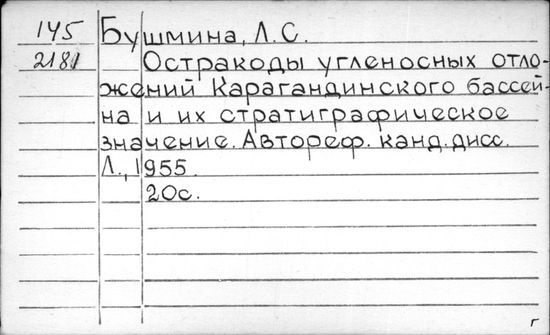 145 Бушмина, Л.С.
2181 Остракоды угленосных отло-
жений Карагандинского бассей-
на и их стратиграфическое
значение. Автореф. канд. дисс.
Л., 1955.
20с.
г